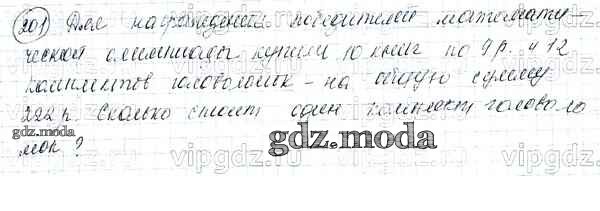 201 Для награждения победителей математи-
ческой олимпиады купили 10 книг по 9 р. и 12
комплектов головоломок - на общую сумму
222 р. Сколько стоит один комплект головоло
мок?
gdz.moda